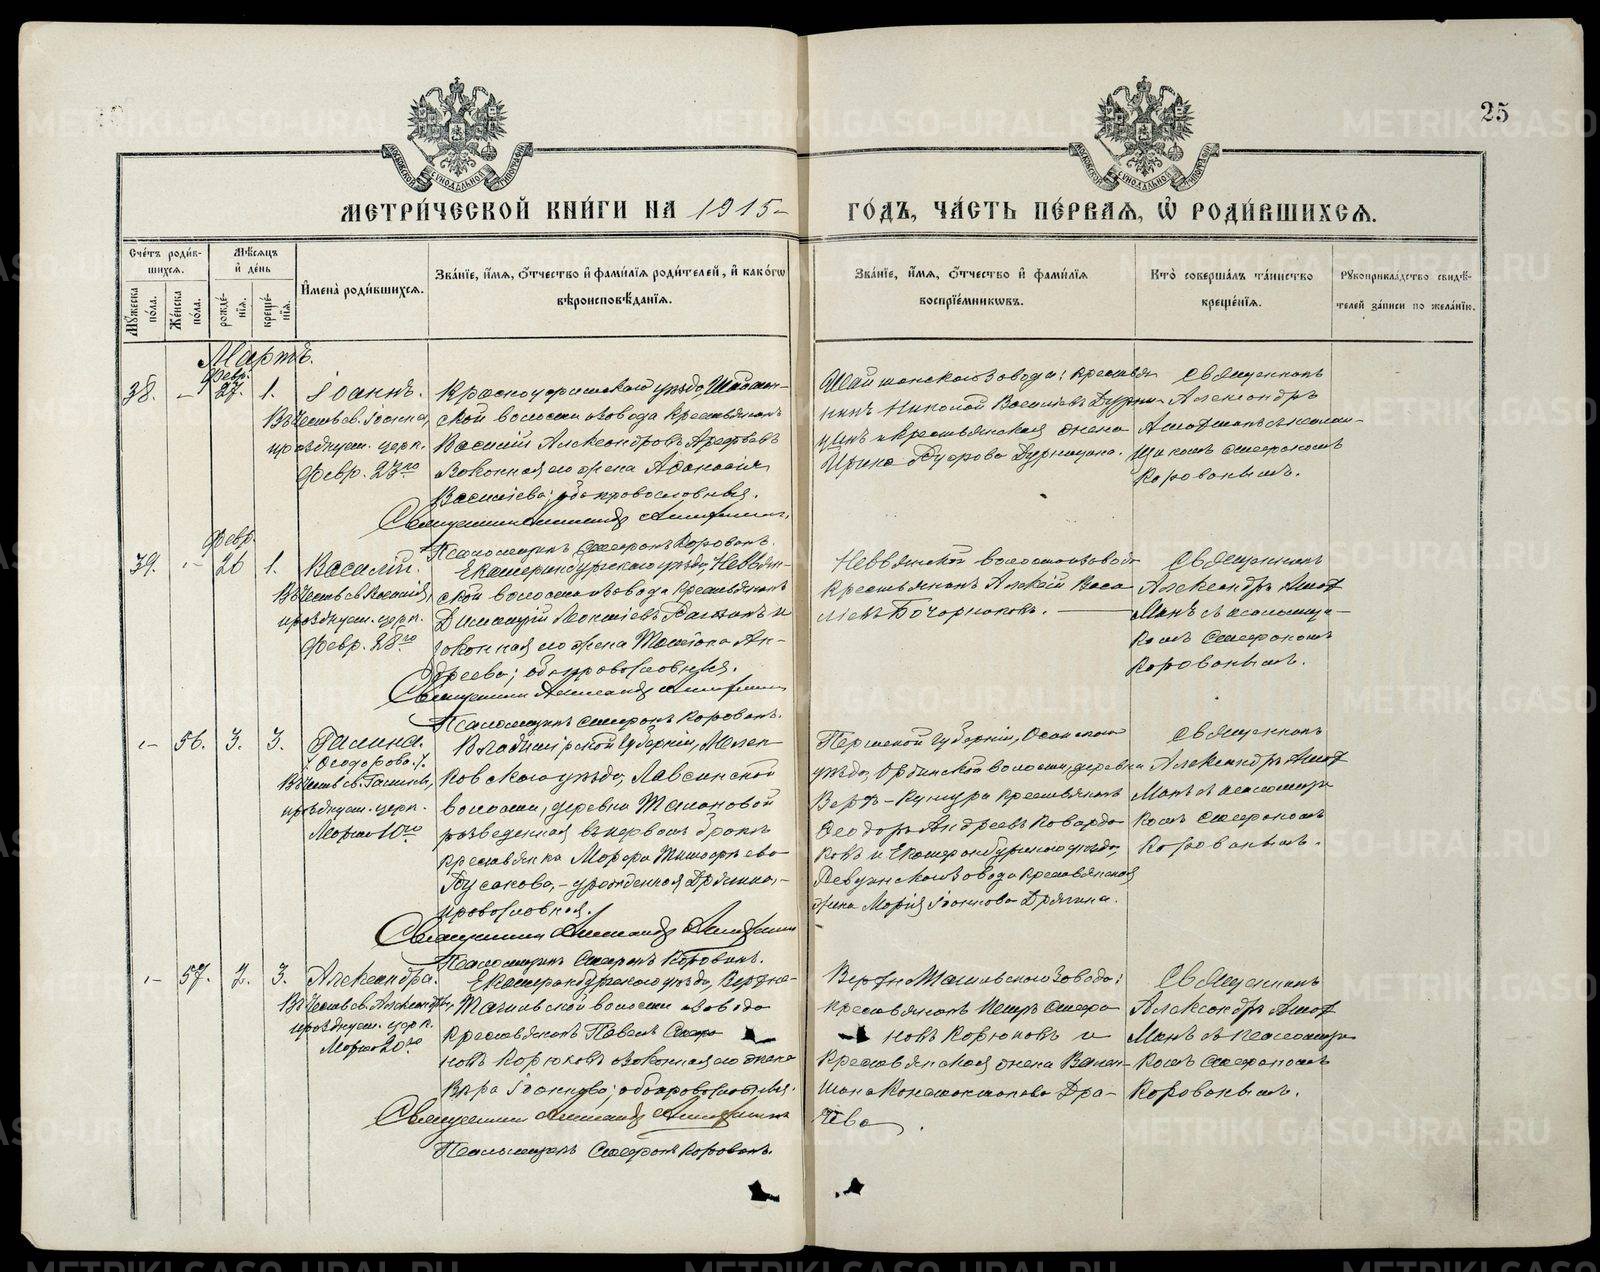 25
МЕТРИЧЕСКОЙ КНИГИ НА 1915 ГОДЪ, ЧАСТЬ ПЕРВАЯ, Ѡ РОДИВШИХСѦ.
Счетъ родив-
шихся.
Мужеска пола.
Женска пола.
Мѣсяцъ
и день
рожде-
нія.
креще-
нія.
Имена родившихся.
Званіе, имя, отчество и фамилія родителей, и какого
вѣроисповѣданія.
Званіе, имя, отчество и фамилія
воспріемниковъ.
Кто совершалъ таинство
крещенія.
Рукоприкладство свидѣ-
телей записи по желанію.
Мартъ.
Февр.
38. – 27. 1.
Іоаннъ.
Въ честь св. Іоанна,
празднуем. церк.
Февр. 23го
Красноуфимскаго уѣзда, Шайтан-
ской волости и завода крестьянинъ
Василій Александровъ Арефьевъ
законная его жена Аѳанасія
Васильева; оба православныя.
Священникъ Александръ
Псаломщикъ Стефанъ Корованъ.
Шайтанскаго завода: крестья-
нинъ Николай Васильевъ Дурни-
цынъ и крестьянская жена
Ирина Дурницына.
Священникъ
Александръ
съ псалом-
щикомъ Стефаномъ
Корованымъ.
Февр.
39. – 26 1.
Василій.
Въ честь св. Василія,
празднуем. церк.
Февр. 28го
Екатеринбургскаго уѣзда, Невьян-
ской волости и завода крестьянинъ
Димитрій Леонтіевъ и
законная его жена Татіана Ан-
дреева; оба православныя.
Священникъ Александръ
Псаломщикъ Стефанъ Корованъ.
Невьянской волости и завода
крестьянинъ Алексій Васи-
ліевъ Бочарниковъ. –
Священникъ
Александръ
съ псаломщи-
комъ Стефаномъ
Корованымъ.
– 56. 3. 3.
Галина.
Ѳеодорова.
Въ честь св. Галины,
празднуем. церк.
Марта 10го
Владимірской губерніи, Мелен-
ковскаго уѣзда,
волости, деревни
разведенная въ первомъ бракѣ
крестьянка Марѳа
Гусакова, – урожденная
православная.
Священникъ Александръ
Псаломщикъ Стефанъ Корованъ.
Пермской губерніи, Осинскаго
уѣзда, Ординской волости, деревни
Верхъ-Кунгура крестьянинъ
Ѳеодоръ Андреевъ
и Екатеринбургскаго уѣзда,
Ревдинскаго завода крестьянская
жена Марія Іоаннова Дрягина.
Священникъ
Александръ
съ псаломщи-
комъ Стефаномъ
Корованымъ.
– 57. 2. 3.
Александра.
Въ честь св. Александры,
празднуем. церк.
Марта 20го
Екатеринбургскаго уѣзда, Верхне-
Тагильской волости и завода
крестьянинъ Павелъ Стефа-
новъ Корюковъ и законная его жена
Вѣра Іоаннова; оба православныя.
Священникъ Александръ
Псаломщикъ Стефанъ Корованъ.
Верхне Тагильскаго завода:
крестьянинъ Петръ Стефа-
новъ Корюковъ и
крестьянская жена Вален-
тина Константинова Дра-
чева.
Священникъ
Александръ
съ псаломщи-
комъ Стефаномъ
Корованымъ.